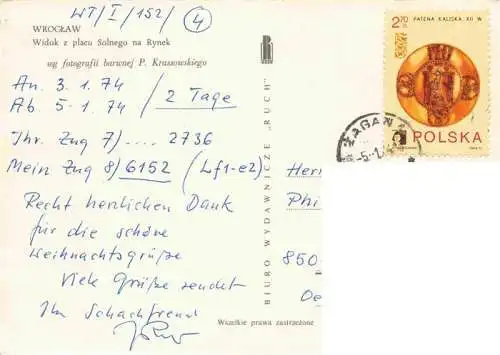 WT/I/152/ (4)
WROCŁAW
Widok z placu Solnego na Rynek
wg fotografii barwnej P. Krassowskiego
An. 3.1.74
Ab. 5-1.74 / 2 Tage
Ihr. Zug 7)... 2736
Mein Zug 8/ 6152 (Lf1-e2)
Recht herzlichen Dank
für die schöne
Weihnachtsgrüße
Viele Grüße sendet
Ihr Schachfreund
BIURO WYDAWNICZE „RUCH”
Wszelkie prawa zastrzeżone
2.70 ZŁ
PATENA KALISKA, XII W.
POLSKA
ŻAGAŃ
-5.-1.74
Herr
Phi
850
Oe